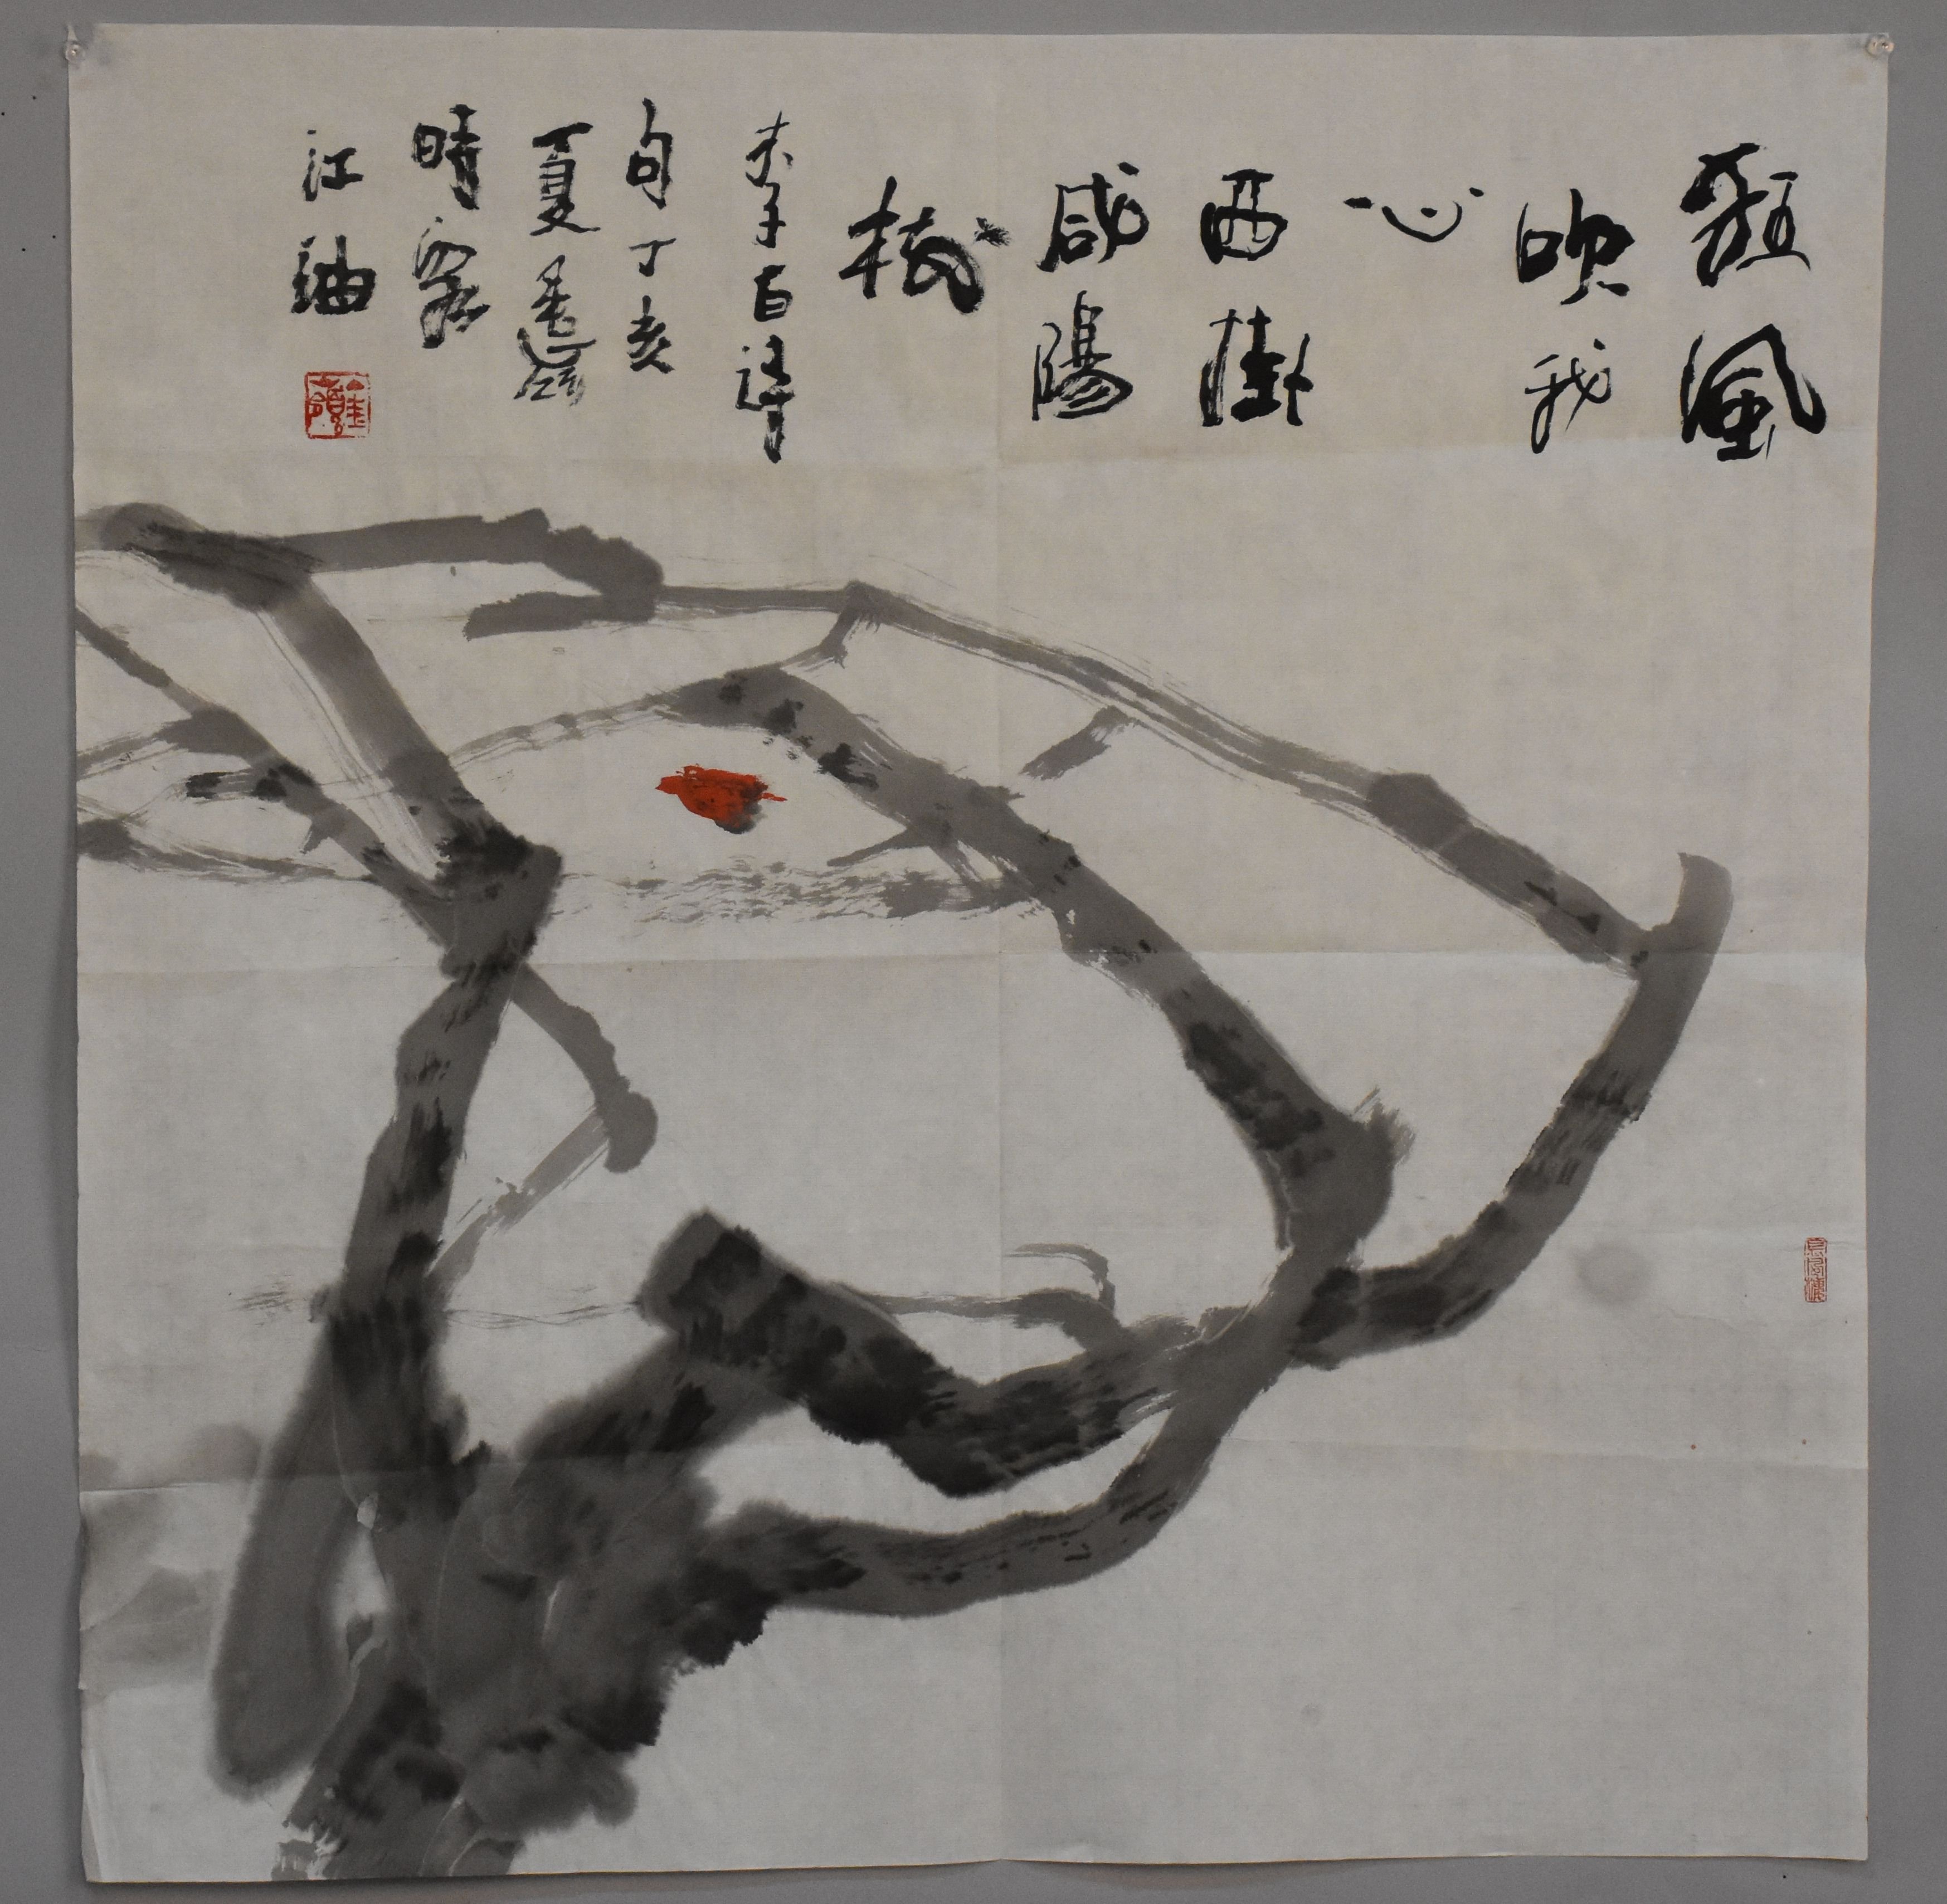 狂風
吹我
心
西掛
咸陽
樹
李白詩
句丁亥
夏
時客
江油